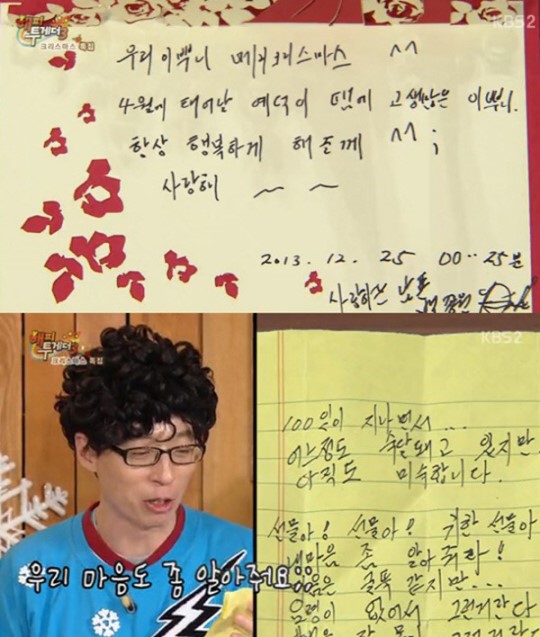 해피
투게더3
크리스마스 특집
KBS2
우리 이쁘니 메리크리스마스 ^^
4월에 태어날 예덕이 땜에 고생많은 이쁘니.
항상 행복하게 해 준께 ^^;
사랑해 ~ ~
2013. 12. 25 00..25분
사랑하는
해피
투게더3
크리스마스 특집
KBS2
100일이 지나면서...
어느정도 숙달돼고 있지만
아직도 미숙합니다.
선물아! 선물아! 귀한 선물아
내마음 좀 알아줘라!
마음은 굴뚝 같지만...
요령이 없어서 그런거란다
우리 마음도 좀 알아줘요!!